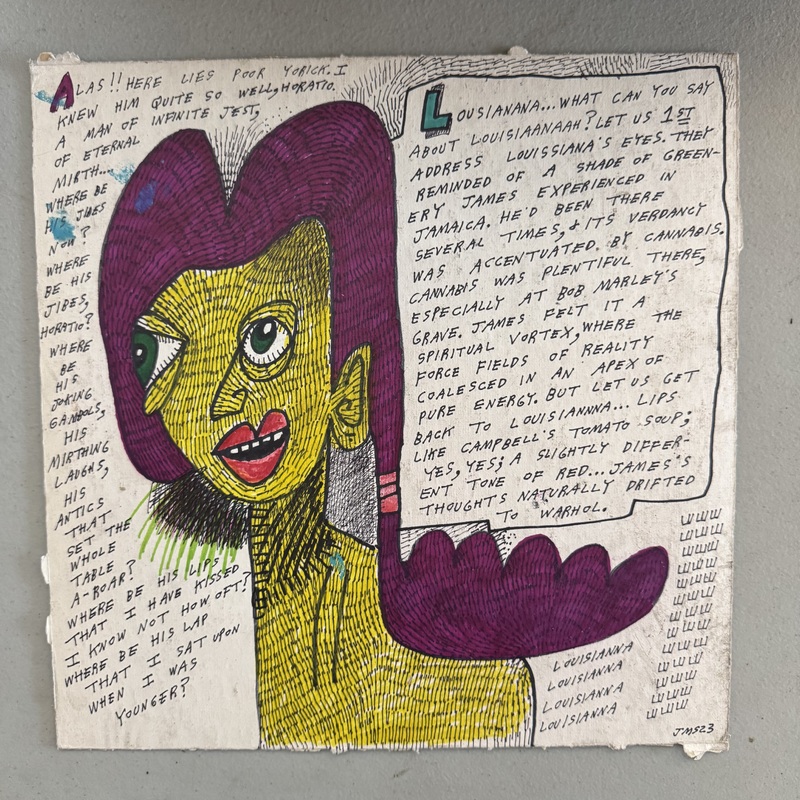 ALAS!! HERE LIES POOR YORICK. I
KNEW HIM QUITE SO WELL, HORATIO.
A MAN OF INFINITE JEST,
OF ETERNAL
MIRTH...
WHERE BE
HIS JIBES
NOW?
WHERE
BE HIS
JIBES,
HORATIO?
WHERE
BE
HIS
JOKING
GAMBOLS,
HIS
MIRTHING
LAUGHS,
HIS
ANTICS
THAT
SET THE
WHOLE
TABLE
A-ROAR?
WHERE BE HIS LIPS
THAT I HAVE KISSED
I KNOW NOT HOW OFT?
WHERE BE HIS LAP
THAT I SAT UPON
WHEN I WAS
YOUNGER?
LOUSIANANA... WHAT CAN YOU SAY
ABOUT LOUISIAANAAH? LET US 1ST
ADDRESS LOUISSIANA'S EYES. THEY
REMINDED OF A SHADE OF GREEN-
ERY JAMES EXPERIENCED IN
JAMAICA. HE'D BEEN THERE
SEVERAL TIMES, & ITS VERDANCY
WAS ACCENTUATED BY CANNABIS.
CANNABIS WAS PLENTIFUL THERE,
ESPECIALLY AT BOB MARLEY'S
GRAVE. JAMES FELT IT A
SPIRITUAL VORTEX, WHERE THE
FORCE FIELDS OF REALITY
COALESCED IN AN APEX OF
PURE ENERGY. BUT LET US GET
BACK TO LOUISIANNNA... LIPS
LIKE CAMPBELL'S TOMATO SOUP;
YES, YES; A SLIGHTLY DIFFER-
ENT TONE OF RED... JAMES'S
THOUGHTS NATURALLY DRIFTED
TO WARHOL.
LOUISIANNA
LOUISIANNA
LOUISIANNA
LOUISIANNA
JMS23